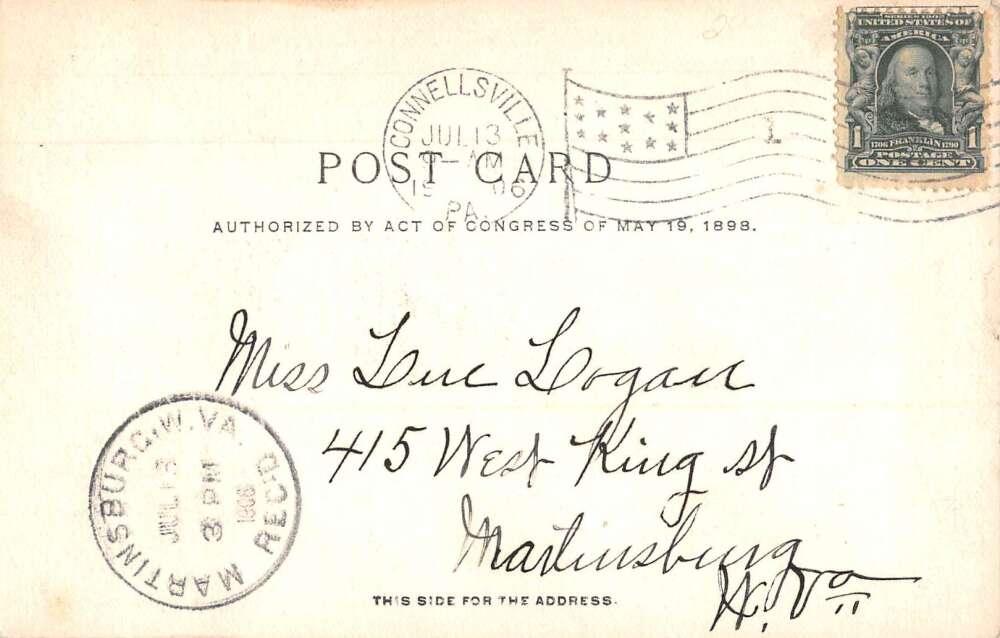 SERIES 1902
UNITED STATES OF
AMERICA
1706 FRANKLIN 1790
1 POSTAGE 1
ONE CENT
CONNELLSVILLE
JUL 13
-AM
19 06
PA.
1
POST CARD
AUTHORIZED BY ACT OF CONGRESS OF MAY 19, 1898.
Miss Sue Logan
415 West King St
Martinsburg
W. Va
MARTINSBURG, W. VA. REC'D.
JUL 13
3 PM
1906
THIS SIDE FOR THE ADDRESS.